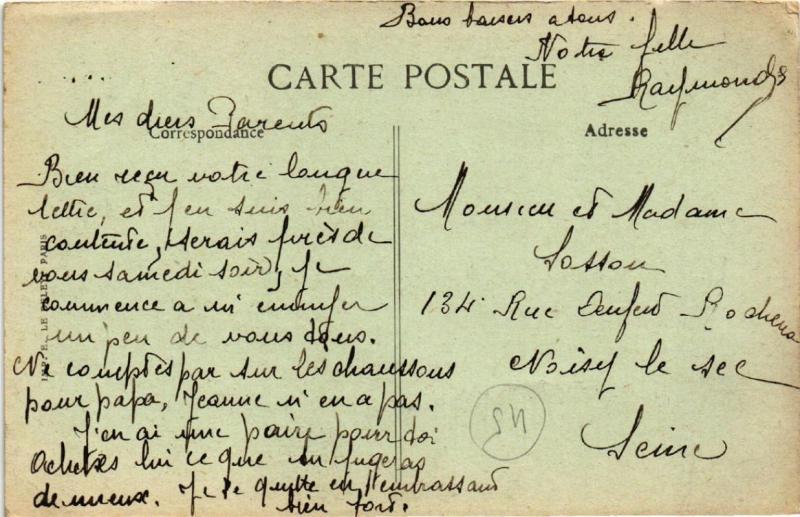 Bons baisers a tous.
Notre fille
Raymonde
CARTE POSTALE
Correspondance
Adresse
Mes chers Parents
Bien reçu votre longue
lettre, et j'en suis bien
contente, serais près de
vous samedi soir, je
commence a m'ennuyer
un peu de vous tous.
Ne comptes pas sur les chaussons
pour papa, Jeanne n'en a pas.
J'en ai une paire pour toi
Achetes lui ce que tu jugeras
de mieux. Je te quitte en t'embrassant
bien fort.
Monsieur et Madame
Sosson
134 Rue Denfert Rochereau
Noisy le sec
Seine
PARIS